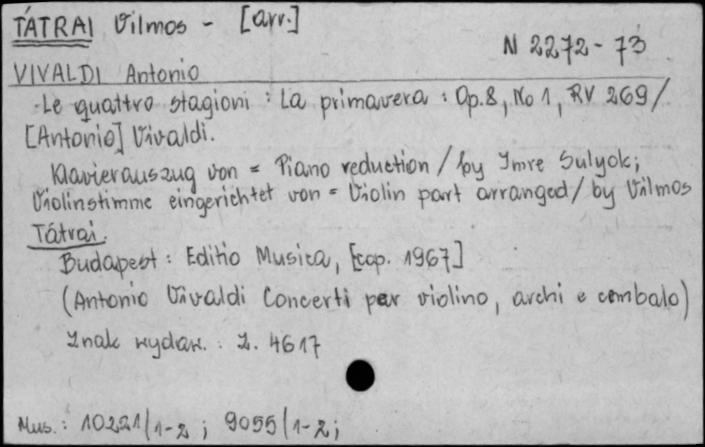 TÁTRAI Vilmos - [arr.]
N 2272-73
VIVALDI Antonio
Le quattro stagioni : La primavera : Op.8, No 1, RV 269/
[Antonio] Vivaldi.
Klavierauszug von = Piano reduction / by Imre Sulyok;
Violinstimme eingerichtet von = Violin part arranged / by Vilmos
Tátrai.
Budapest : Editio Musica, [cop. 1967]
(Antonio Vivaldi Concerti per violino, archi e cembalo)
Znak wydaw. : Z. 4617
Mus. : 10221/1-2 ; 9055/1-2 ;